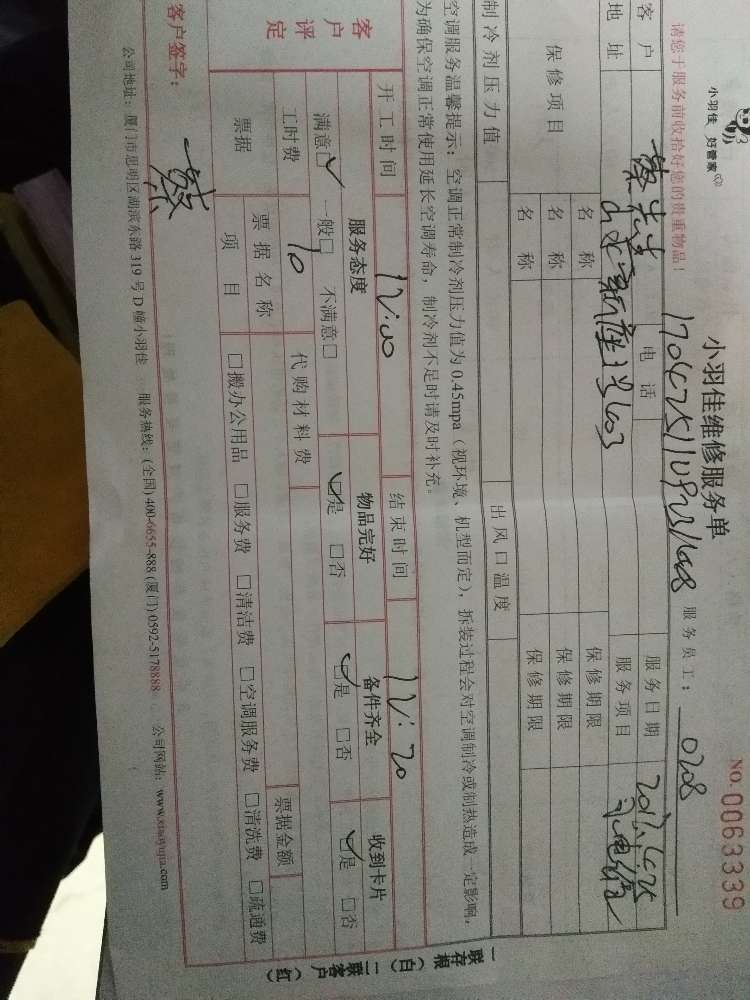 小羽佳 好管家
小羽佳维修服务单
NO.0063339
请您于服务前收拾好您的贵重物品!
服务员工: 0208
客户 电话 服务日期
地址 服务项目
保修项目 名称 保修期限
名称 保修期限
名称 保修期限
制冷剂压力值 出风口温度
空调服务温馨提示:空调正常制冷剂压力值为0.45mpa(视环境、机型而定),拆装过程会对空调制冷或制热造成一定影响,
为确保空调正常使用延长空调寿命,制冷剂不足时请及时补充。
开工时间 结束时间
客户评定 服务态度 物品完好 备件齐全 收到卡片
满意□ 一般□ 不满意□ □是 □否 □是 □否 □是 □否
工时费 70 代购材料费
票据 票据名称 票据金额
项目 □搬办公用品 □服务费 □清洁费 □空调服务费 □清洗费 □疏通费
客户签字:
公司地址:厦门市思明区湖滨东路319号D幢小羽佳 服务热线:(全国)400-6655-888(厦门)0592-5178888 公司网站:www.xiaoyujia.com
一联存根(白)二联客户(红)